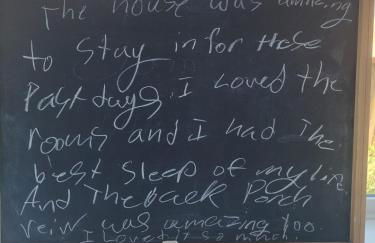 The house was amazing
to stay in for these
Past days. I Loved the
rooms and I had The
best Sleep of my Life.
And The back Porch
veiw was amazing too.
I Loved it so much.